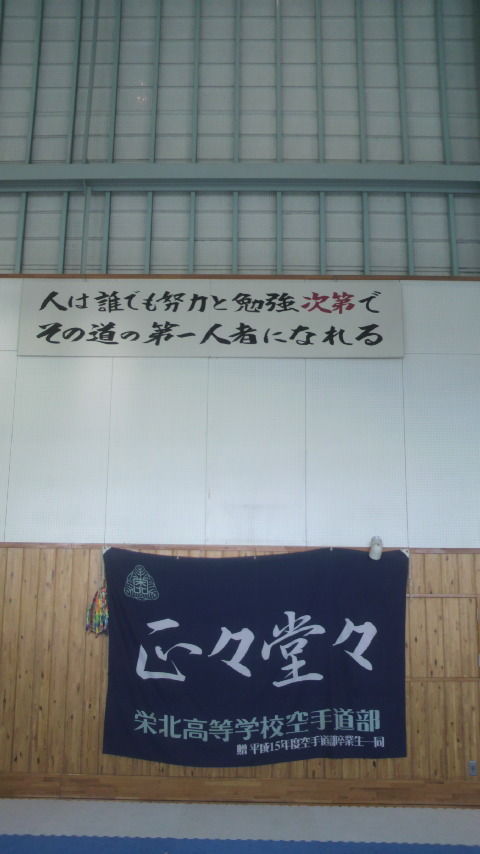 人は誰でも努力と勉強次第で
その道の第一人者になれる
正々堂々
栄北高等学校空手道部
贈 平成15年度空手道部卒業生一同